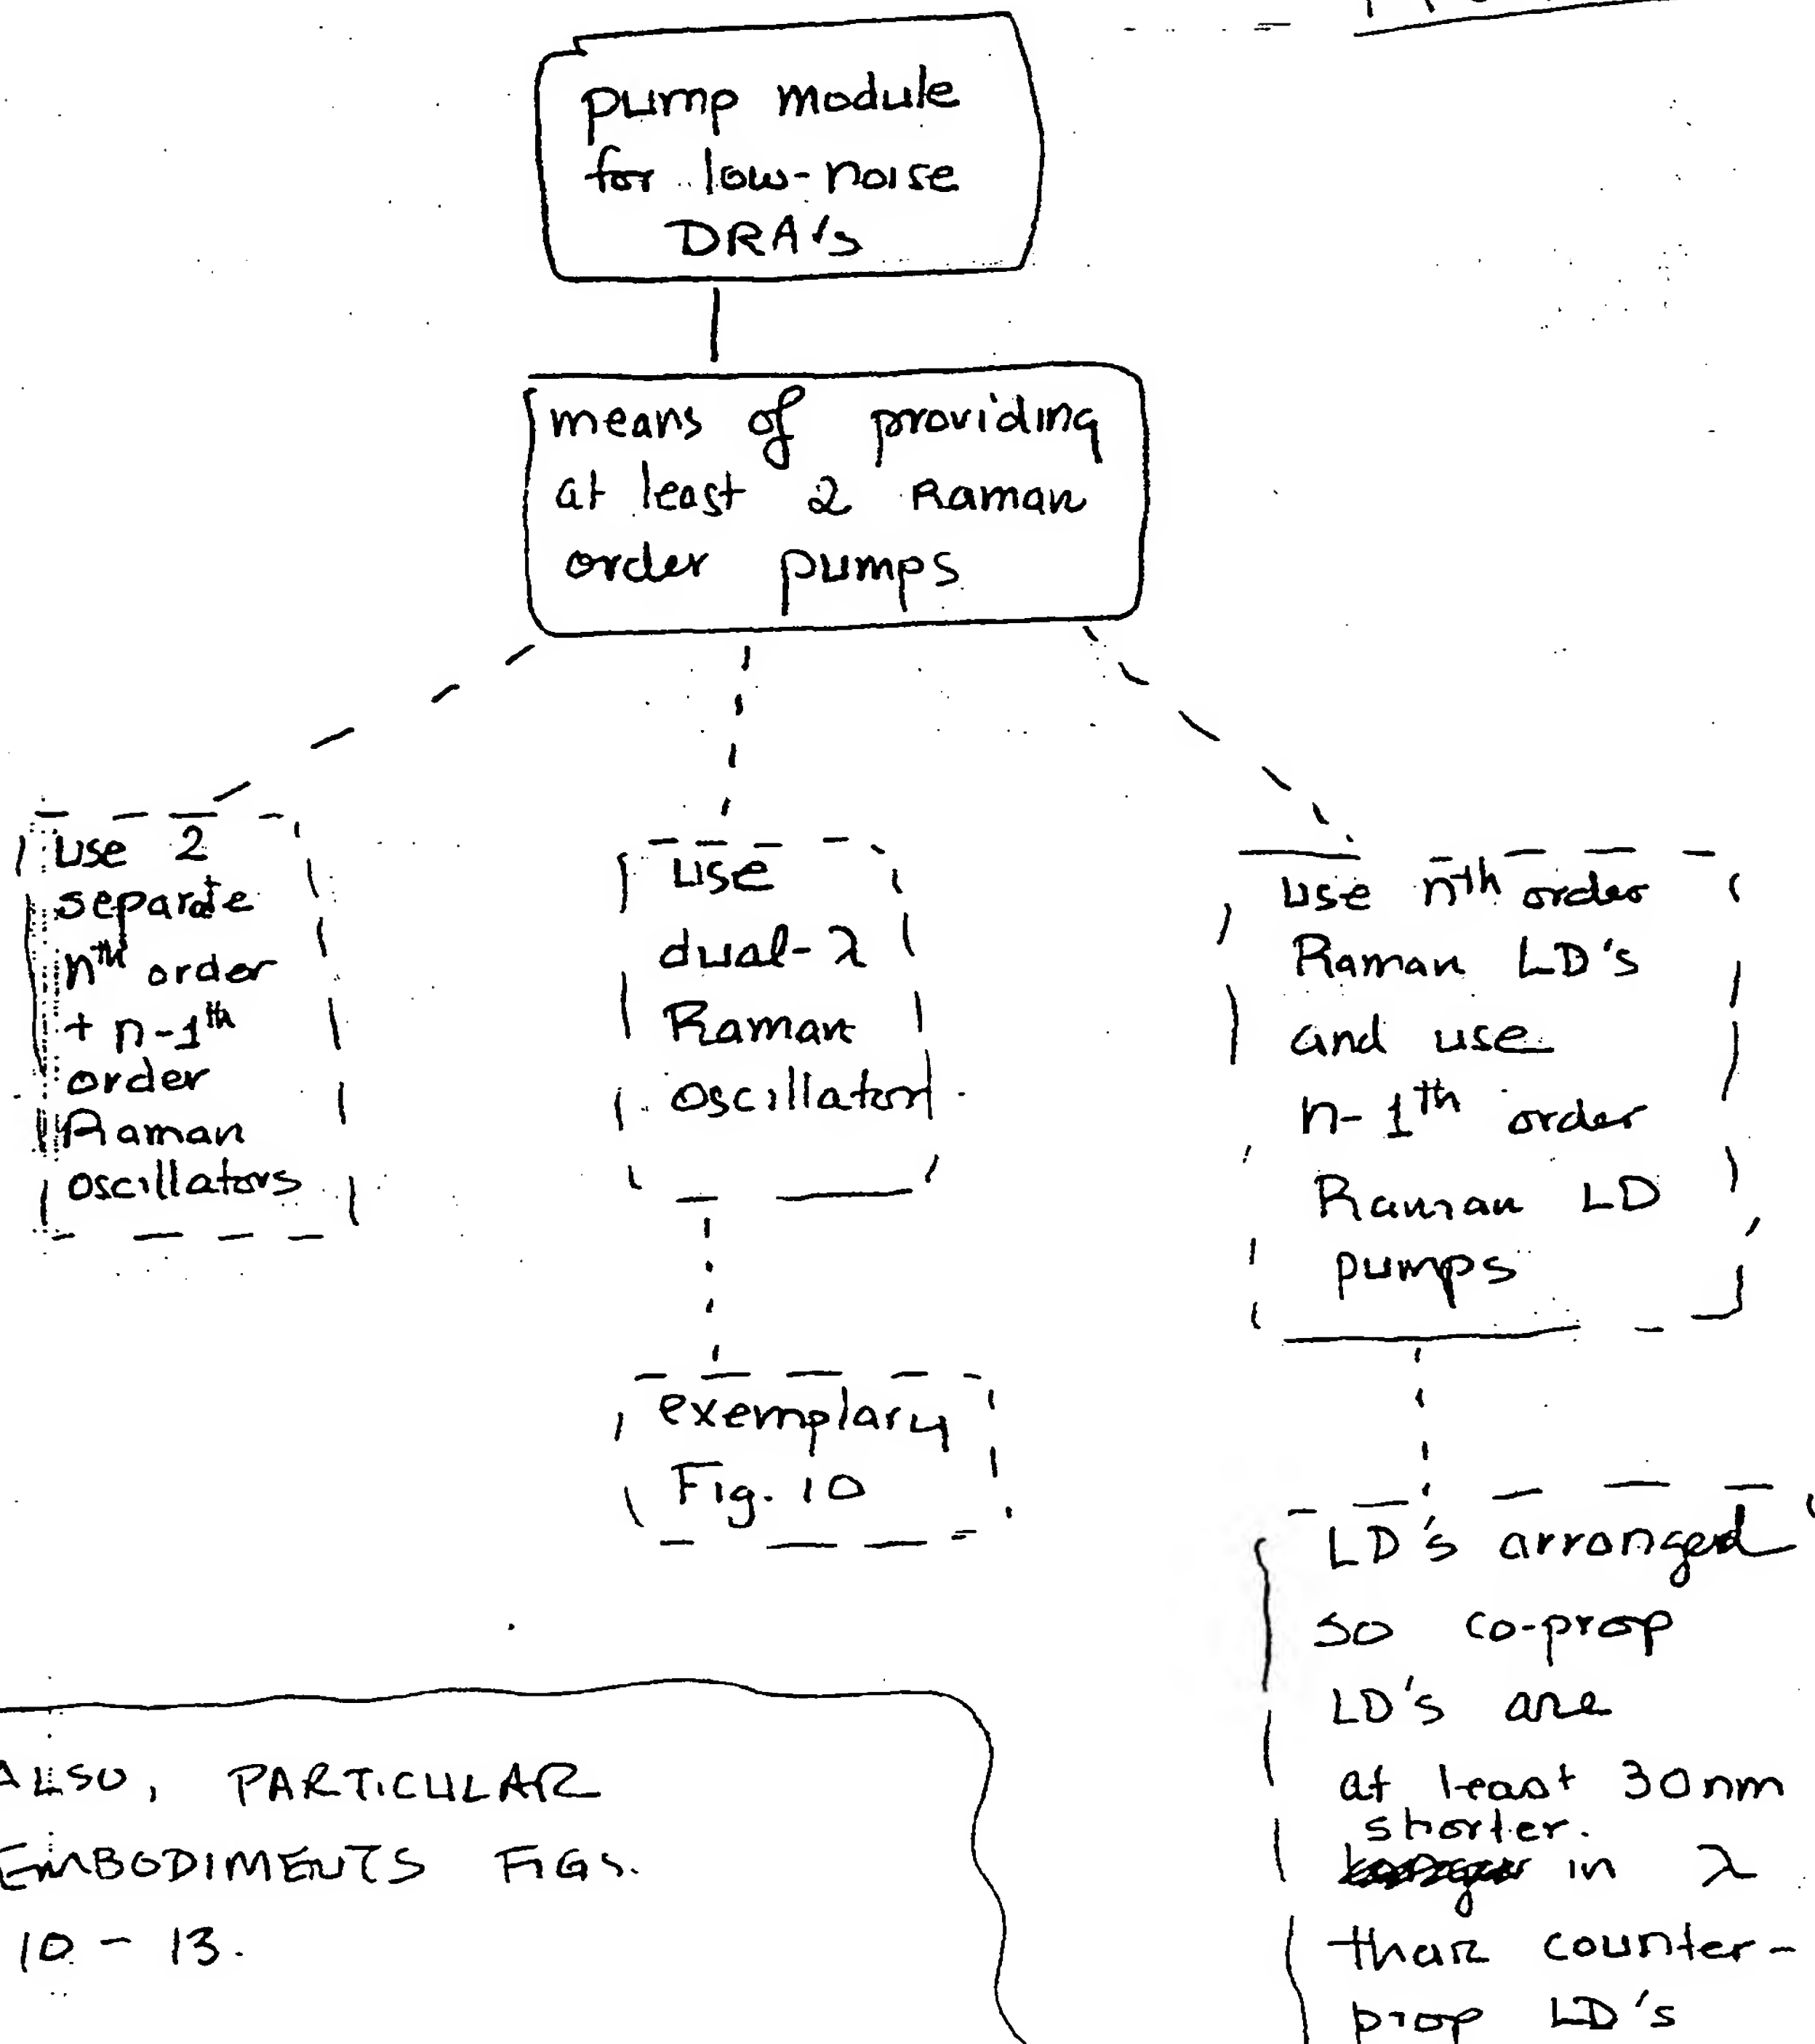 pump module
for low-noise
DRA's
means of providing
at least 2 Raman
order pumps
use 2
separate
nth order
+ n-1th
order
Raman
oscillators
use
dual-λ
Raman
oscillator
exemplary
Fig. 10
use nth order
Raman LD's
and use
n-1th order
Raman LD
pumps
LD's arranged
so co-prop
LD's are
at least 30nm
shorter
in λ
than counter-
prop LD's
ALSO, PARTICULAR
EMBODIMENTS FIGS.
10 - 13.